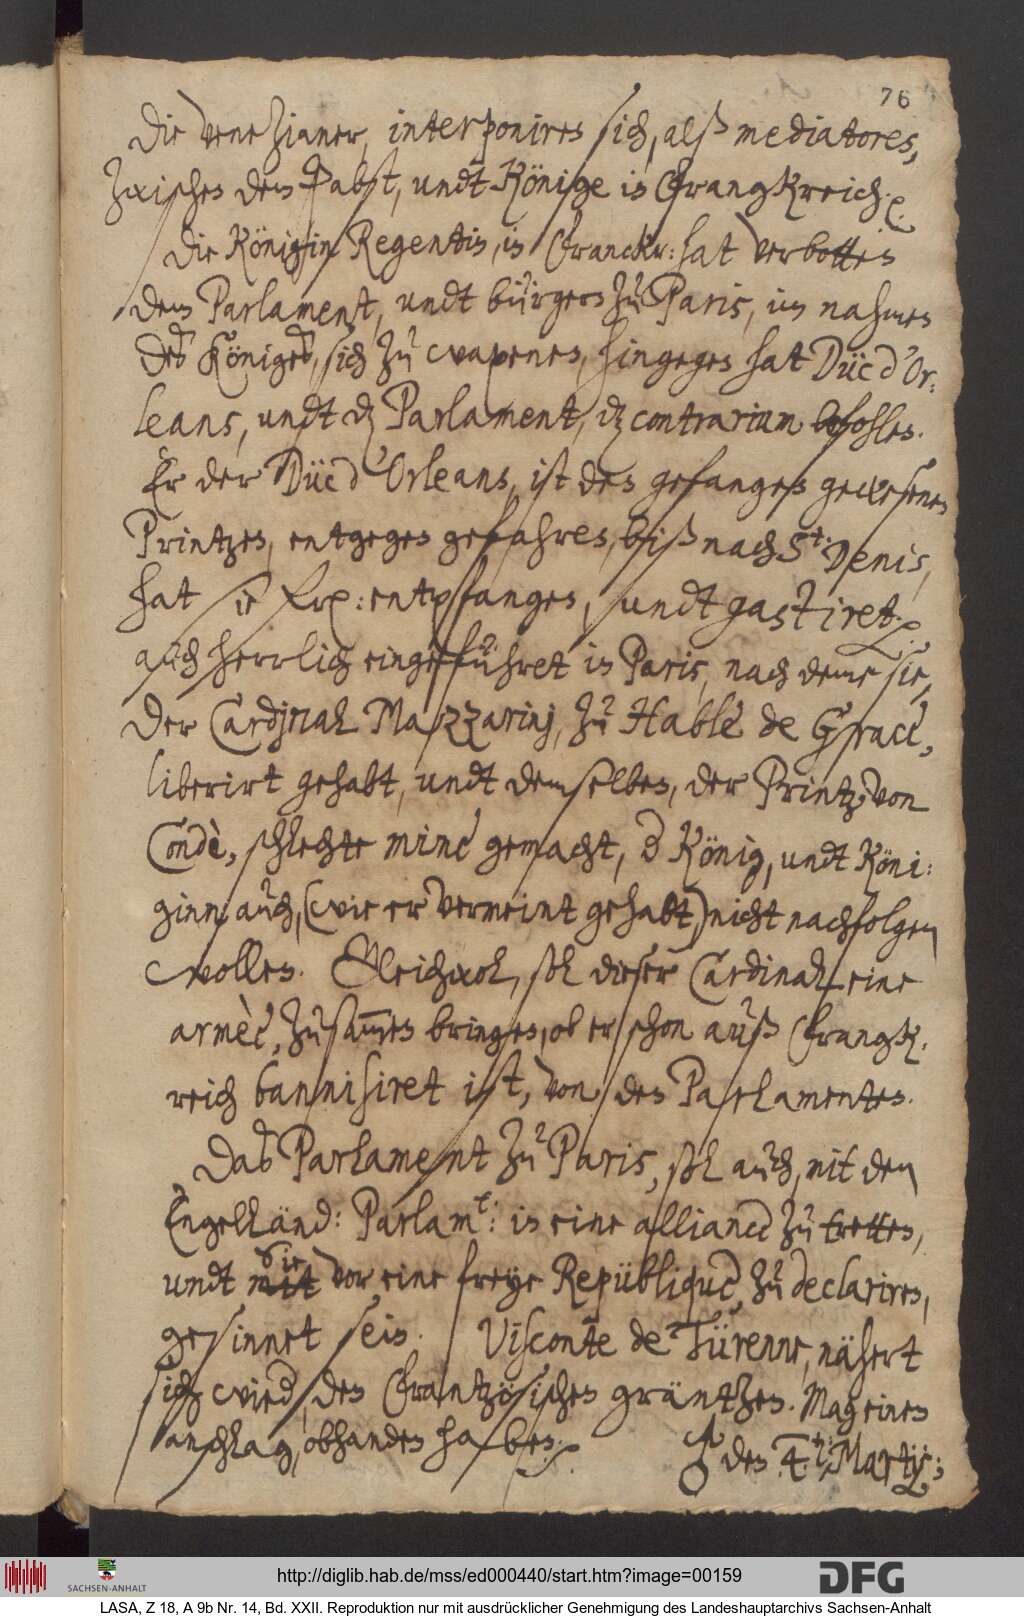 76
Die Venezianer, interponiren sich, alß mediatores,
zwischen dem Pabst, undt Könige in Frangkreich.
Die Königin Regentin, in Franckr: hat verbotten
dem Parlament, undt bürgern zu Paris, im nahmen
des Königes, sich zu wapenen, hingegen hat Düc d'Or:
leans, undt dz Parlament, dz contrarium befohlen.
Er der Düc d'Orleans, ist den gefangen gewesenen
Printzen, entgegen gefahren, biß nach St: Denis,
hat sie herrl: entpfangen, undt gastiret.
auch herrlich eingeführet in Paris, nach deme sie,
Der Cardinal Mazzarinj, zu Hable de Grace,
liberirt gehabt, undt demselben, der Printz von
Condè, schlechte mine gemacht, d König, undt Köni:
ginn auch, (wie er vermeint gehabt,) nicht nachfolgen
wollen. Gleichwol, soll dieser Cardinal eine
armèe, zusammen bringen, ob er schon auß Frangk.
reich bannisiret ist, von den Parlamenten.
Das Parlament zu Paris, soll auch, mit dem
Engelländ: Parlamt: in eine alliance zu tretten,
undt sie vor eine freye Republique, zu declariren,
gesinnet sein. Visconte de Türenne, nähert
sich wied, den Frantzösischen gräntzen. Mag einen
anschlag, obhanden haben.
♂ den 4.t: Martij:
http://diglib.hab.de/mss/ed000440/start.htm?image=00159
SACHSEN-ANHALT
DFG
LASA, Z 18, A 9b Nr. 14, Bd. XXII. Reproduktion nur mit ausdrücklicher Genehmigung des Landeshauptarchivs Sachsen-Anhalt